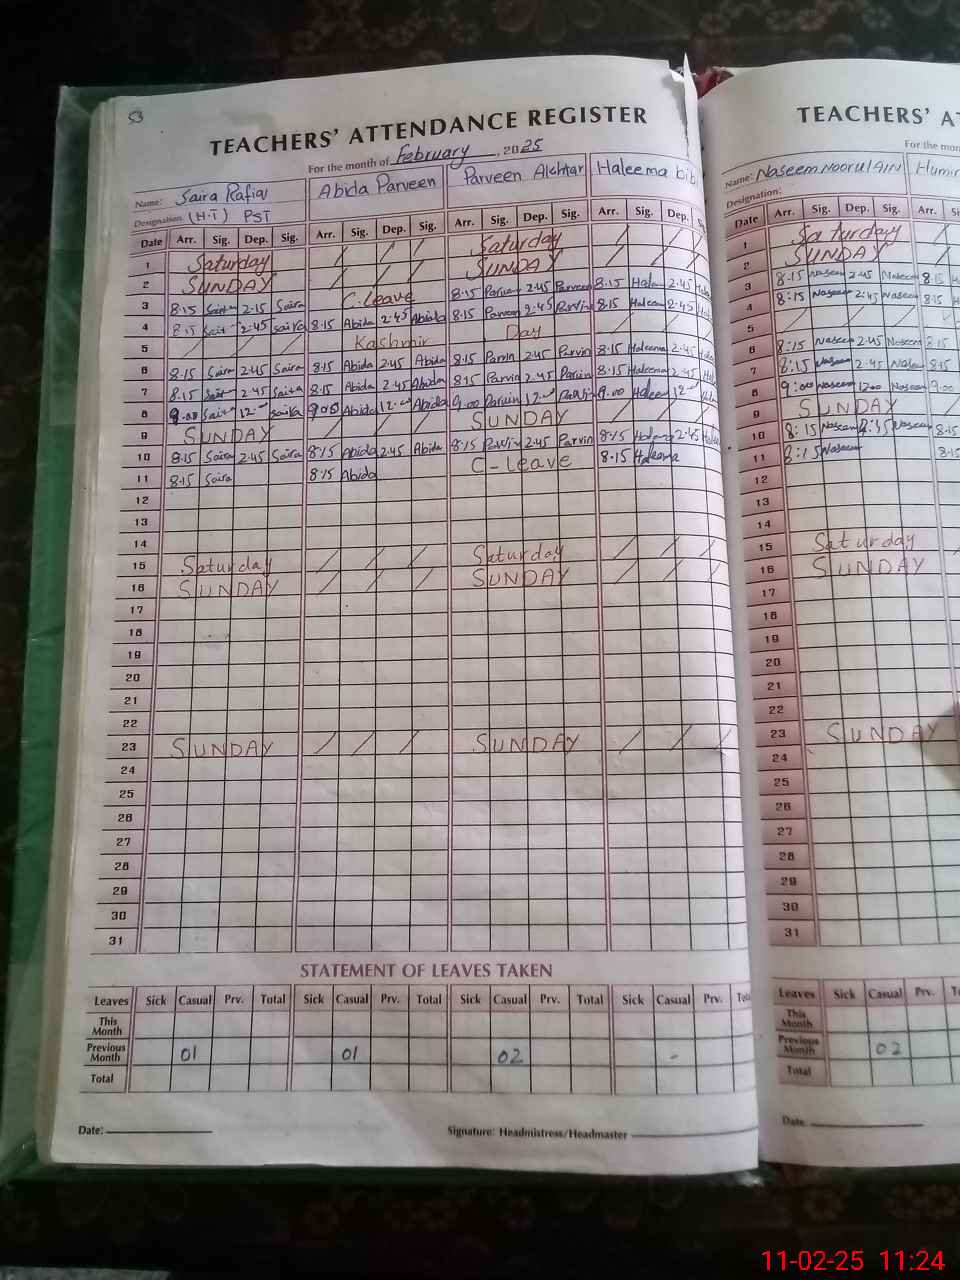 53
TEACHERS' ATTENDANCE REGISTER
For the month of February, 2025
Name: Saira Rafiq Abida Parveen Parveen Akhtar Haleema bibi
Designation (H.T) PST
Date Arr. Sig. Dep. Sig. Arr. Sig. Dep. Sig. Arr. Sig. Dep. Sig. Arr. Sig. Dep.
1 Saturday / / / Saturday / / /
2 SUNDAY / / / SUNDAY / / /
3 8:15 Saira 2:15 Saira C.leave 8:15 Parveen 2:45 Parveen 8:15 Halee 2:45
4 8:15 Sair 2:45 Saira 8:15 Abida 2:45 Abida 8:15 Parveen 2:45 Parvin 8:15 Haleem 2:45
5 / / / / Kashmir Day / / /
6 8:15 Saira 2:45 Saira 8:15 Abida 2:45 Abida 8:15 Parvin 2:45 Parvin 8:15 Haleema 2:45
7 8:15 Sair 2:45 Saira 8:15 Abida 2:45 Abida 8:15 Parvin 2:45 Parvin 8:15 Haleema 2:45
8 9:00 Saira 12 Saira 9:00 Abida 12 Abida 9:00 Parvin 12 Parvin 9:00 Haleem 12
9 SUNDAY / / / SUNDAY / / /
10 8:15 Saira 2:45 Saira 8:15 Abida 2:45 Abida 8:15 Parvin 2:45 Parvin 8:15 Haleema 2:45
11 8:15 Saira 8:15 Abida C-leave 8:15 Haleema
12
13
14
15 Saturday / / / Saturday / / /
16 SUNDAY / / / SUNDAY / / /
17
18
19
20
21
22
23 SUNDAY / / / SUNDAY / / /
24
25
26
27
28
29
30
31
STATEMENT OF LEAVES TAKEN
Leaves Sick Casual Prv. Total Sick Casual Prv. Total Sick Casual Prv. Total Sick Casual Prv.
This Month
Previous Month 01 01 02 -
Total
Date:
Signature: Headmistress/Headmaster
TEACHERS'
For the
Name: Naseem Noorul Ain
Designation:
Date Arr. Sig. Dep. Sig. Arr.
1 Saturday /
2 SUNDAY /
3 8:15 Naseem 2:45 Naseem 8:15
4 8:15 Naseem 2:45 Naseem 8:15
5 / / / /
6 8:15 Naseem 2:45 Naseem 8:15
7 8:15 Naseem 2:45 Naseem 8:15
8 9:00 Naseem 12:00 Naseem 9:00
9 SUNDAY /
10 8:15 Naseem 2:45 Naseem 8:15
11 8:15 Naseem 8:15
12
13
14
15 Saturday
16 SUNDAY
17
18
19
20
21
22
23 SUNDAY
24
25
26
27
28
29
30
31
Leaves Sick Casual Prv.
This Month
Previous Month 02
Total
Date
11-02-25 11:24